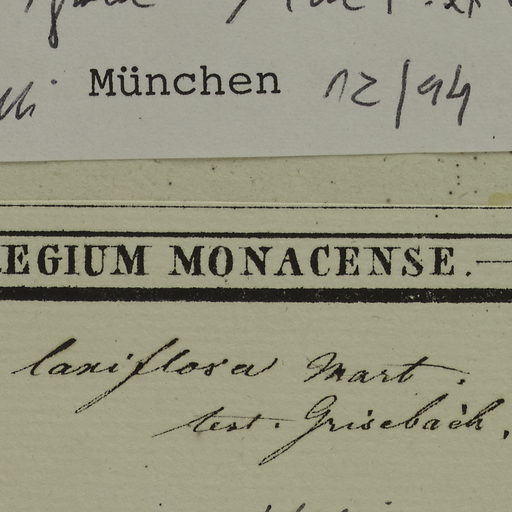 München 12/94
EGIUM MONACENSE.
laxiflora Mart.
test. Grisebach.